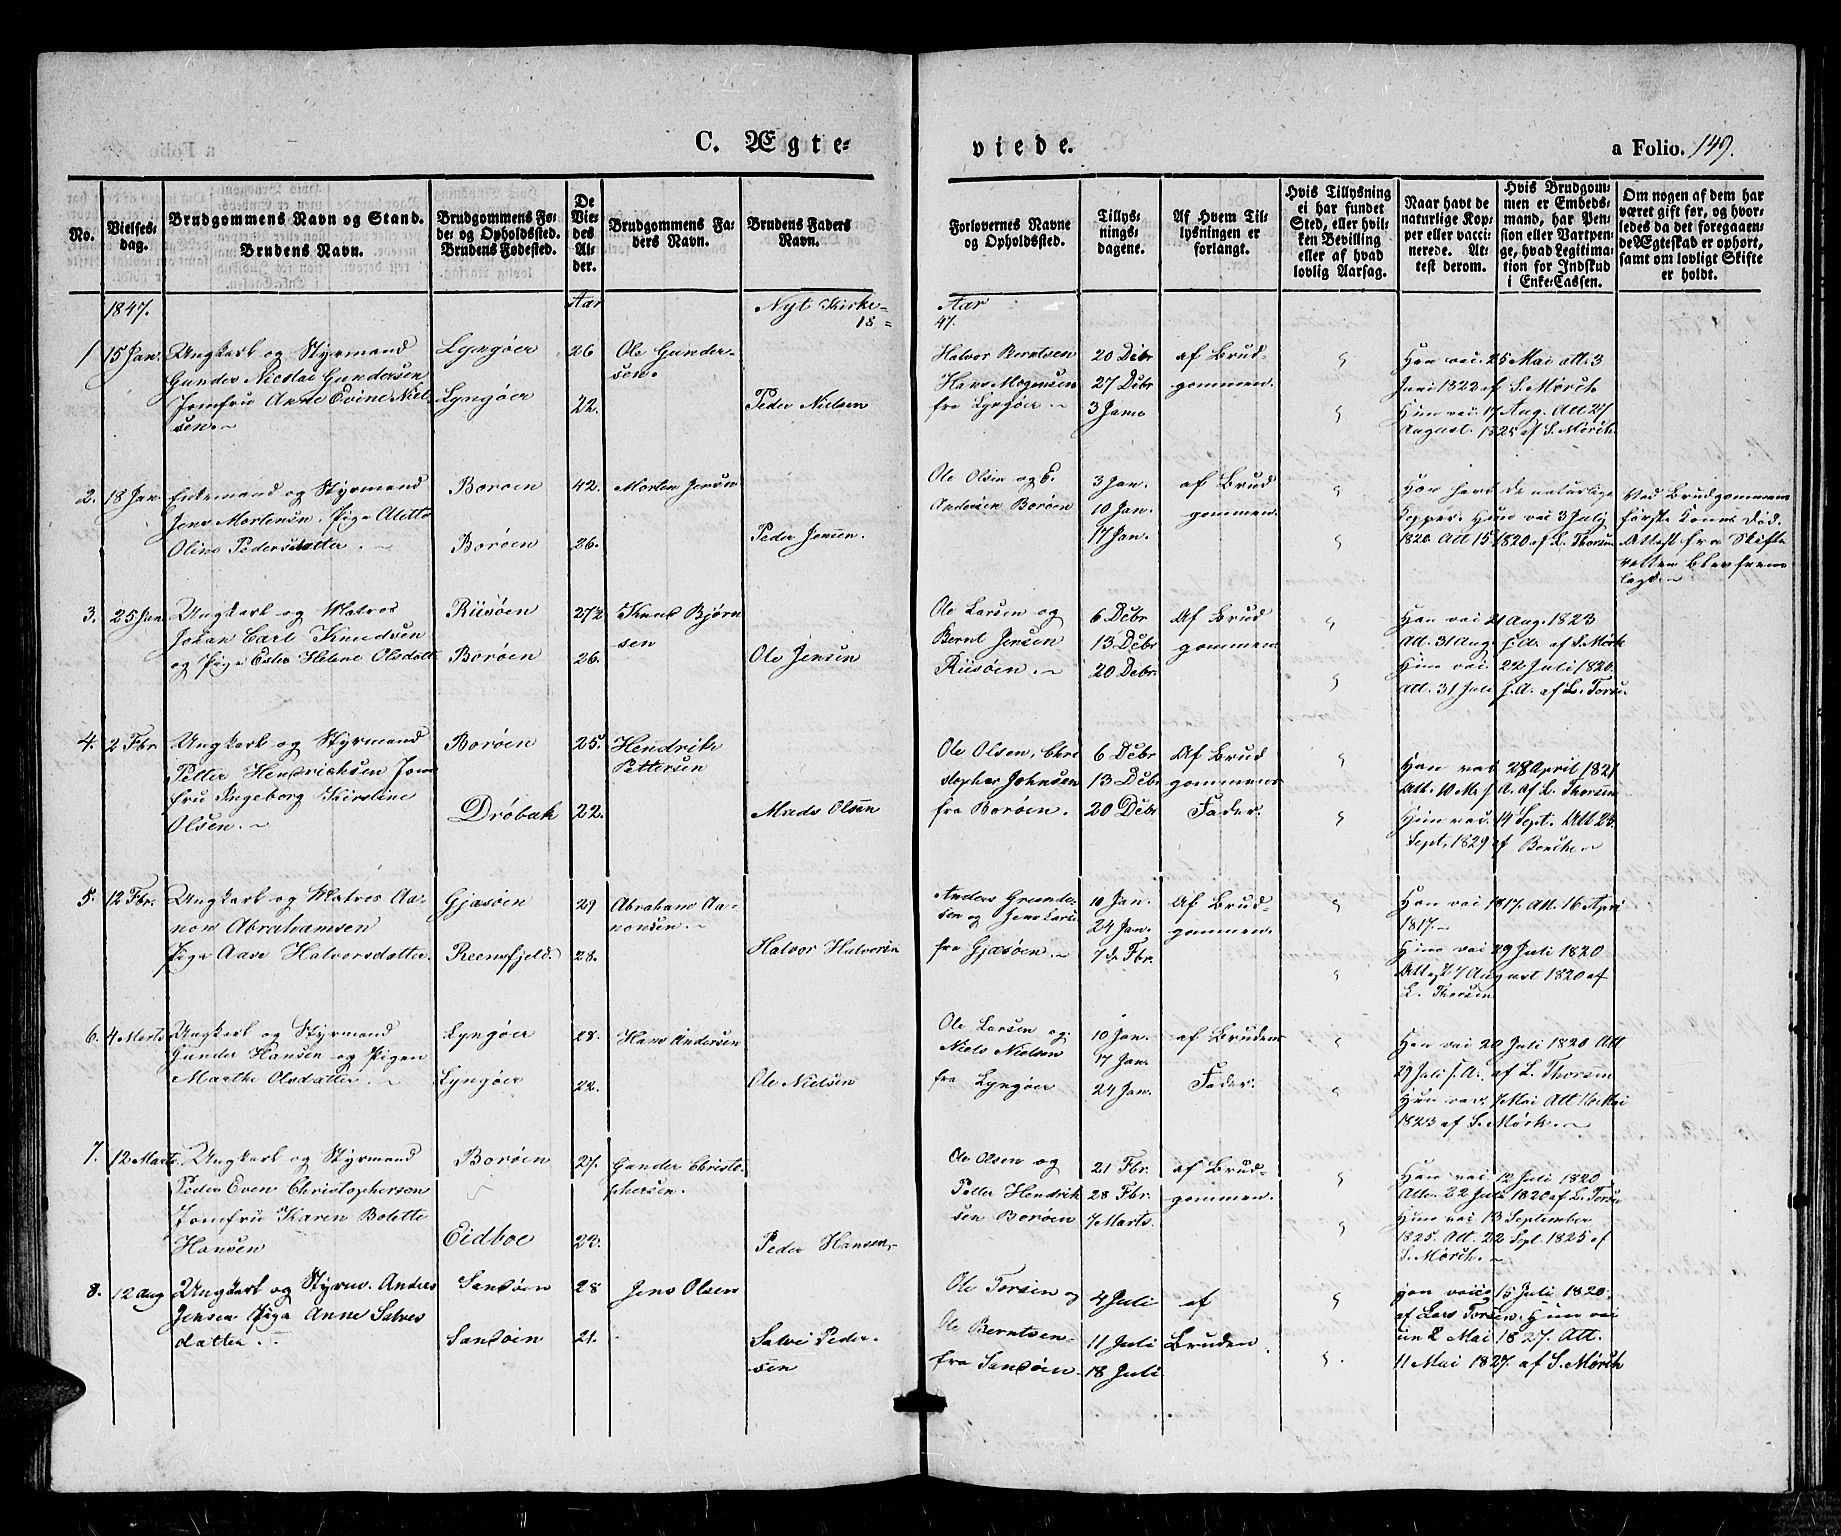 C. Ægte-
viede.
a Folio. 149.
No.
Vielses-
dag.
Brudgommens Navn og Stand.
Brudens Navn.
Brudgommens Fø-
de- og Opholdssted.
Brudens Fødested.
De
Vie-
des
Al-
der.
Brudgommens Fa-
ders Navn.
Brudens Faders
Navn.
Forlovernes Navne
og Opholdssted.
Tillys-
nings-
dagene.
Af Hvem Til-
lysningen er
forlangt.
Hvis Tillysning
ei har fundet
Sted, eller hvil-
ken Bevilling
eller af hvad
lovlig Aarsag.
Naar havt de
naturlige Kop-
per eller vacci-
nerede. At-
test derom.
Hvis Brudgom-
men er Embeds-
mand, har Pen-
sion eller Vartpen-
ge, hvad Legitima-
tion for Indskud
i Enke-Cassen.
Om nogen af dem har
været gift før, og hvor-
ledes da det foregaaen-
de Ægteskab er ophørt,
samt om lovligt Skifte
er holdt.
1847.
Aar
Nyt Kirke-
18=
Aar
47.
1
15 Jan.
Ungkarl og Styrmand
Gunder Nicolai Gundersen
Jomfru Anne Evine Niel-
sen.
Lyngøer
Lyngøer
26
22.
Ole Gunder-
sen.
Peder Nielsen
Halvor Berntsen
Hans Mogensen
fra Lyngøer
20 Debr
27 Debr
3 Janr
af Brud-
gommen.
Han vac. 25 Mai att. 3
Juni 1822 af S. Mørch
Hun vac. 17 Aug. Att 27
August. 1825 af S. Mørch.
2.
18 Jan.
Enkemand og Styrmand
Jens Mortensen. Pige Alette
Oline Pedersdatter.
Borøen
Borøen
42.
26.
Morten Jensen
Peder Jensen.
Ole Olsen og E.
Andersen Borøen
3 Jan.
10 Jan.
17 Jan.
af Brud
gommen.
Han havt de naturlige
Kopper. Hun vac 3 July
1820. Att 15 1820 af L. Thorsen
Ved Brudgommens
første Kones Død.
Attest fra Skifte
retten blev frem
lagt.
3.
25 Jan
Ungkarl og Matros
Johan Carl Knudsen
og Pige Ester Helene Olsdatt
Riisøen
Borøen
27½
26.
Knud Bjørn
sen
Ole Jensen
Ole Larsen og
Bernt Jensen
Riisøen.
6 Debr
13 Debr
20 Debr.
Af Brud
gommen
Han vac. 21 Aug. 1823
Att. 31 Aug s. A. af S. Mørk
Hun vac. 22 Juli 1820.
Att. 31 Juli s. A. af L. Torse.
4.
2 Fbr
Ungkarl og Styrmand
Petter Hendrichsen Jom
fru Ingeborg Kirstine
Olsen.
Borøen
Drøbak
25.
22.
Hendrik
Pettersen
Mads Olsen
Ole Olsen, Chri
stopher Johnsen
fra Borøen.
6 Debr
13 Debr
20 Debr
Af Brud
gommens
Fader.
Han vac 28 April 1821
Att. 10 M. s. A. af L. Thorsen
Hun vac. 14 Sept. Att 24.
Sept. 1829 af
5.
12 Fbr.
Ungkarl og Matros Aa-
non Abrahamsen
Pige Aase Halvorsdatter.
Gjæsøen
Reensfjeld.
29
28.
Abraham Aa-
nonsen.
Halvor Halvorsen
Anders Gunder-
sen og Jens Larse
fra Gjæsøen.
10 Jan.
24 Jan.
7de Fbr.
Af Brud-
gommen.
Han vac 1817. Att. 16 Apri
1817.
Hun vac 29 Juli 1820
Attest 7 August 1820 af
L. Thorsen
6.
4 Marts
Ungkarl og Styrmand
Gunder Hansen og Pigen
Marthe Olsdatter.
Lyngøer
Lyngøer
28.
22.
Hans Andersen
Ole Nielsen
Ole Larsen og
Niels Nielsen
fra Lyngøer
10 Jan.
17 Jan.
24 Jan.
af Brudens
Fader.
Han vac 20 Juli 1820 Att
29 Juli s. A. af L. Thorsen
Hun vac. 7 Mai Att 16 Mai
1823 af S. Mørk.
7.
12 Marts.
Ungkarl og Styrmand
Peder Even Christophersen
Jomfru Karen Bolette
Hansen
Borøen
Eidboe
27.
23.
Gunder Christo-
phersen.
Peder Hansen
Ole Olsen og
Petter Hendrik
sen Borøen
21 Fbr.
28 Fbr.
7 Marts.
af Brud-
gommen.
Han vac. 12 Juli 1820
Att. 22 Juli 1820 af L. Torse
Hun vac 13 September
1825. Att. 22 Sept. 1825 af
S. Mørch.
8.
12 Aug
Ungkarl og Styrm. Anders
Jensen Pige Anne Salves
datter.
Sandøen
Sandøen
28
21.
Jens Olsen
Salve Peder-
sen
Ole Torsen og
Ole Berntsen
fra Sandøen
4 Juli
11 Juli
18 Juli
af
Bruden
Han vacc 15 Juli 1820.
af Lars Torsen. Hun vac
in 2 Mai 1827. Att.
11 Mai 1827. af S. Mørch